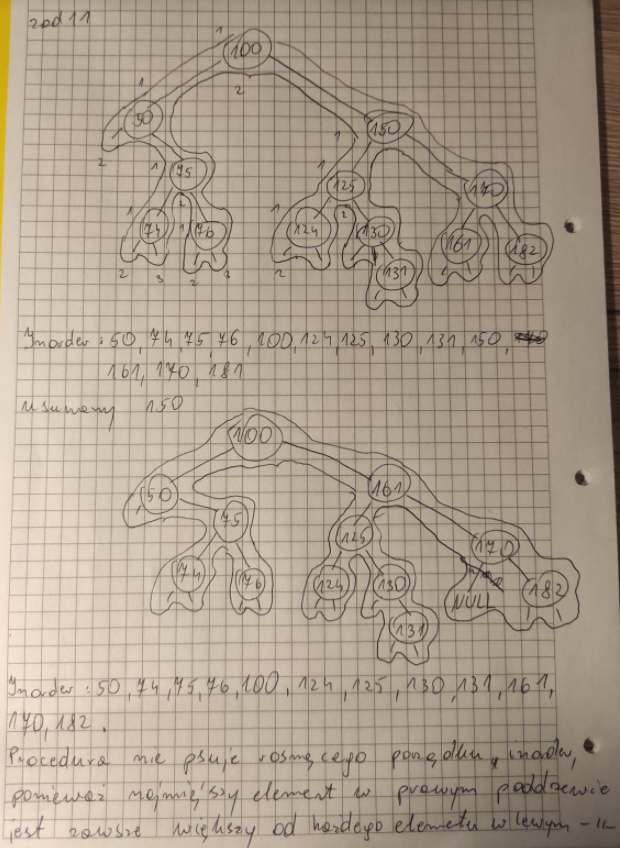 zad 11
1
100
1
2
50
150
2
1
75
1
1
125
170
1
2
1
2
74
1
76
124
130
161
182
2
3
2
3
2
131
Inorder : 50, 74, 75, 76, 100, 124, 125, 130, 131, 150,
161, 170, 181
usuwamy 150
100
50
161
75
125
170
74
76
124
130
NULL
182
131
Inorder : 50, 74, 75, 76, 100, 124, 125, 130, 131, 161,
170, 182.
Procedura nie psuje rosnącego porządku inorder,
ponieważ najmniejszy element w prawym poddrzewie
jest zawsze większy od każdego elemetu w lewym -||-